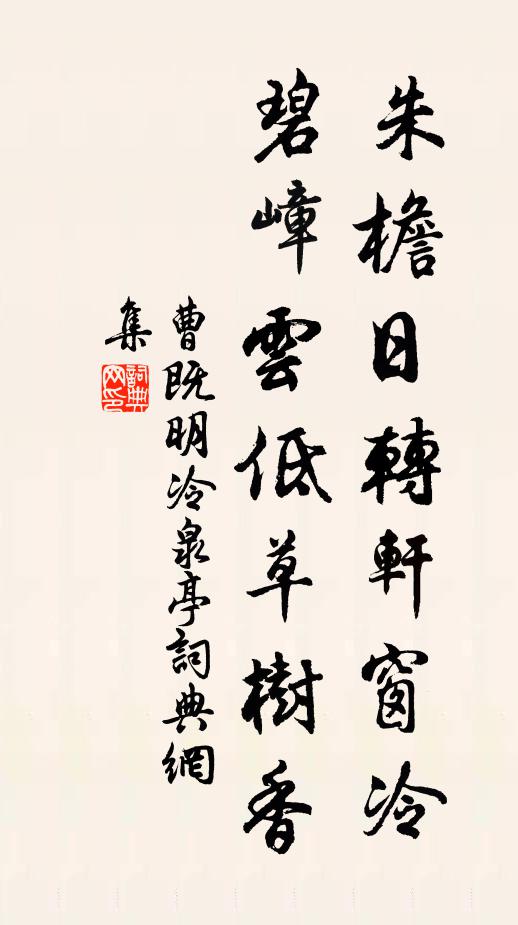 朱檐日轉軒窗冷
碧嶂雲低草樹香
曹既明冷泉亭詞典網
集
詞典网印